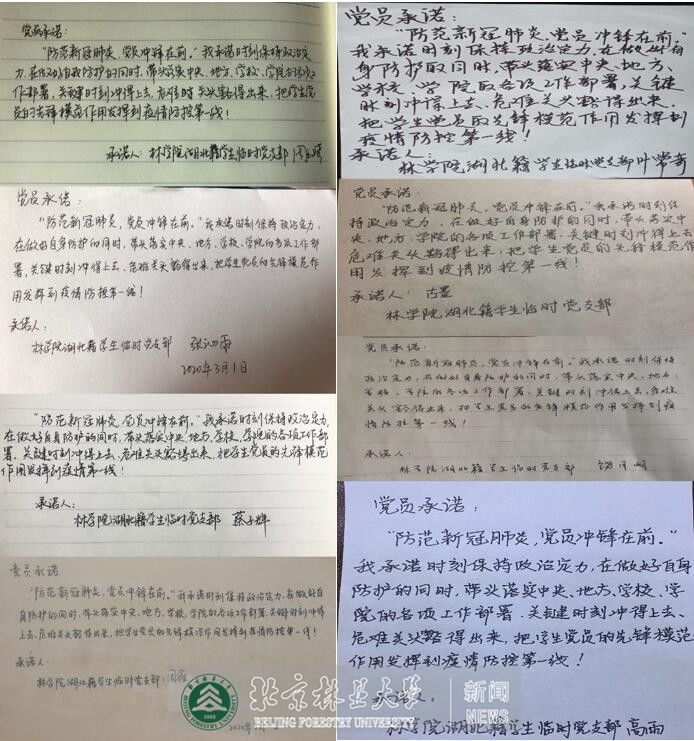 党员承诺:
"防范新冠肺炎,党员冲锋在前。"我承诺时刻保持政治定
力,在做好自我防护的同时,带头落实中央、地方、学校、学院的各项工
作部署,关键时刻冲得上去,危难时刻关头豁得出来,把学生党
员的先锋模范作用发挥到疫情防控第一线!
承诺人:林学院湖北籍学生临时党支部
党员承诺:
"防范新冠肺炎,党员冲锋在前。"我承诺时刻保持政治定力,
在做好自身防护的同时,带头落实中央、地方、学校、学院的各项工作部
署,关键时刻冲得上去、危难关头豁得出来,把学生党员的先锋模范作
用发挥到疫情防控第一线!
承诺人:
林学院湖北籍学生临时党支部 张沁雨
2020年3月1日
"防范新冠肺炎,党员冲锋在前。"我承诺时刻保持政治定力,
在做好自身防护的同时,带头落实中央、地方、学校、学院的各项工作部
署,关键时刻冲得上去、危难关头豁得出来,把学生党员的先锋模范
作用发挥到疫情防控第一线!
承诺人:
林学院湖北籍学生临时党支部 蔡子烨
党员承诺
"防范新冠肺炎,党员冲锋在前。"我承诺时刻保持政治定力,在做好自
身防护的同时,带头落实中央、地方、学校、学院的各项工作部署,关键时刻冲得
上去、危难关头豁得出来,把学生党员的先锋模范作用发挥到疫情防控第一线!
承诺人:
林学院湖北籍学生临时党支部:
党员承诺:
"防范新冠肺炎,党员冲锋在前。"
我承诺时刻保持政治定力,在做好自
身防护的同时,带头落实中央、地方、
学校、学院的各项工作部署,关键
时刻冲得上去、危难关头豁得出来,
把学生党员的先锋模范作用发挥到
疫情防控第一线!
承诺人:
林学院湖北籍学生临时党支部叶常奇
党员承诺:
"防范新冠肺炎,党员冲锋在前。"我承诺时刻保
持政治定力,在做好自身防护的同时,带头落实中
央、地方、学院的各项工作部署,关键时刻冲得上去、
危难关头豁得出来,把学生党员的先锋模范作
用发挥到疫情防控第一线!
承诺人: 古昱
林学院湖北籍学生临时党支部
党员承诺:
"防范新冠肺炎,党员冲锋在前。"我承诺时刻保持
政治定力,在做好自身防护的同时,带头落实中央、地方、
学校、学院的各项工作部署,关键时刻冲得上去,危难
关头豁得出来,把学生党员的先锋模范作用发挥到疫
情防控第一线!
承诺人:
林学院湖北籍学生临时党支部
党员承诺:
"防范新冠肺炎,党员冲锋在前。"
我承诺时刻保持政治定力,在做好自身
防护的同时,带头落实中央、地方、学校、学
院的各项工作部署,关键时刻冲得上去、
危难关头豁得出来,把学生党员的先锋模范
作用发挥到疫情防控第一线!
承诺人:
林学院湖北籍学生临时党支部 高雨
北京林业大学 新闻
BEIJING FORESTRY UNIVERSITY NEWS
1952